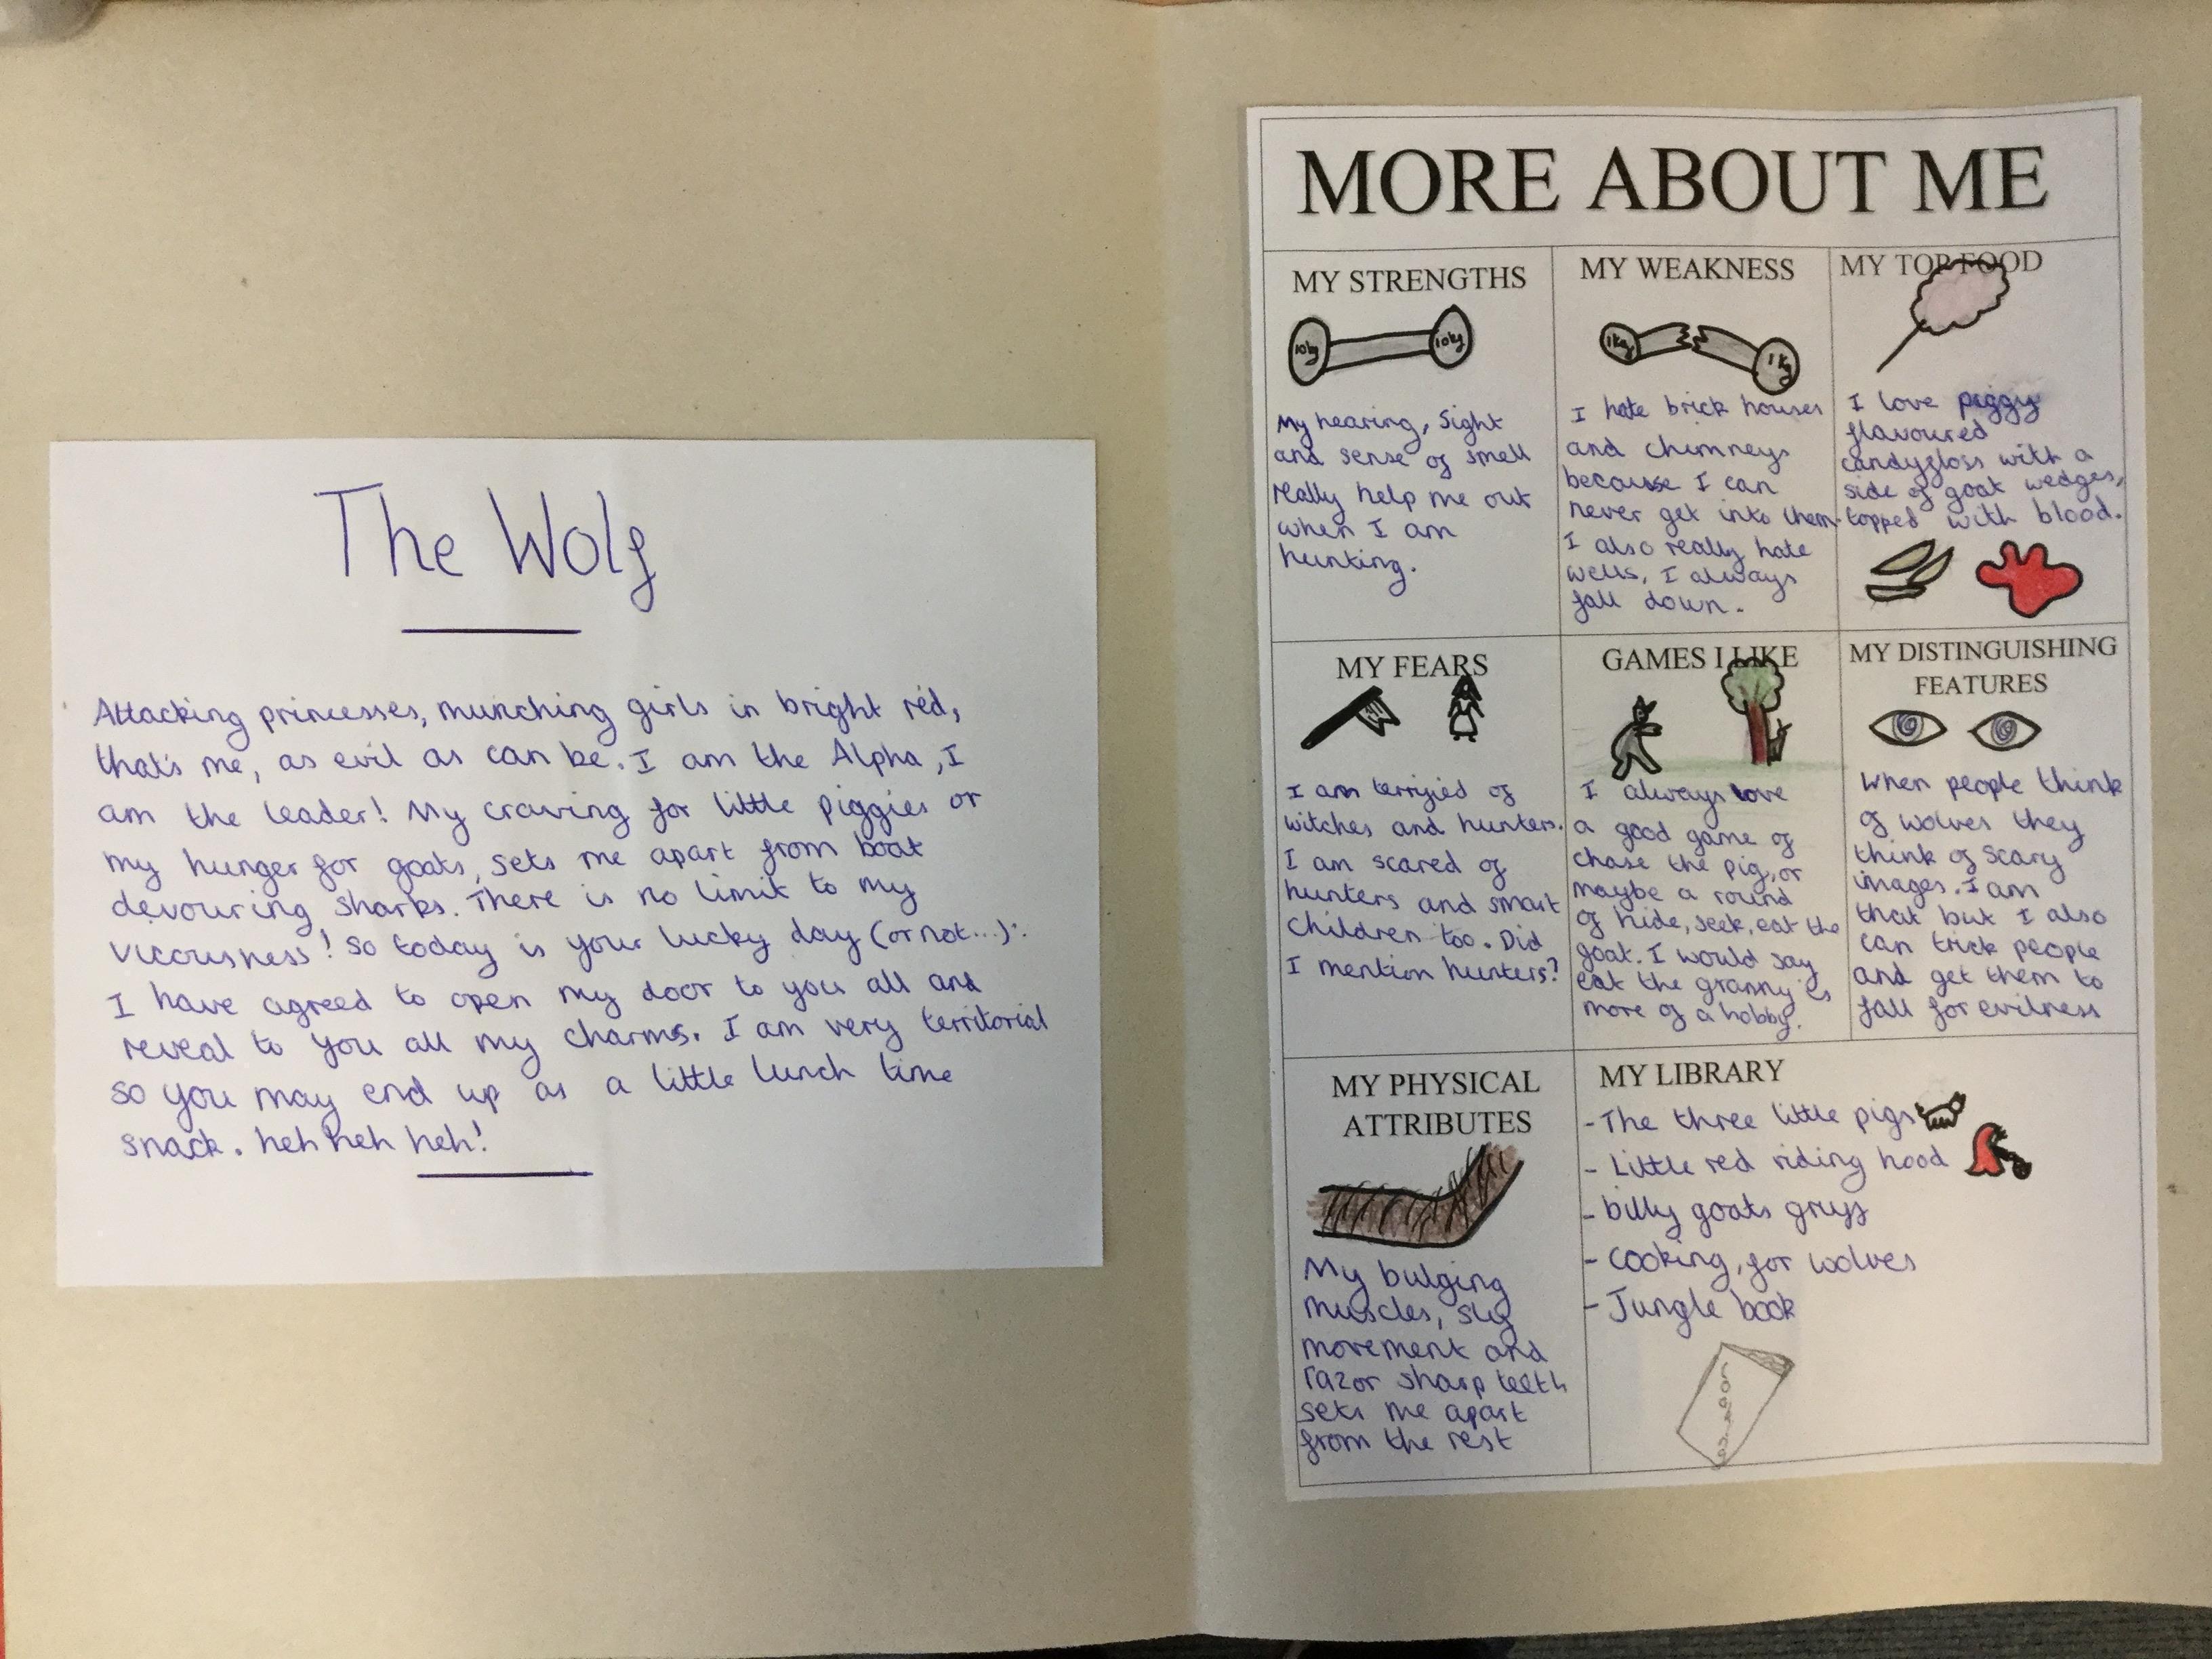 The Wolf
Attacking princesses, munching girls in bright red,
that's me, as evil as can be. I am the Alpha, I
am the leader! My craving for little piggies or
my hunger for goats, sets me apart from boat
devouring sharks. There is no limit to my
vicousness! So today is your lucky day (or not...):
I have agreed to open my door to you all and
reveal to you all my charms. I am very territorial
so you may end up as a little lunch time
snack. heh heh heh!
MORE ABOUT ME
MY STRENGTHS
10kg
10kg
My hearing, Sight
and sense of smell
really help me out
when I am
hunting.
MY WEAKNESS
1kg
1kg
I hate brick houses
and chimneys
because I can
never get into them.
I also really hate
wells, I always
fall down.
MY TOP FOOD
I love piggy
flavoured
candyfloss with a
side of goat wedges,
topped with blood.
MY FEARS
I am terrified of
witches and hunters.
I am scared of
hunters and smart
children too. Did
I mention hunters?
GAMES I LIKE
I always love
a good game of
chase the pig, or
maybe a round
of hide, seek, eat the
goat. I would say
eat the granny is
more of a hobby.
MY DISTINGUISHING
FEATURES
When people think
of wolves they
think of scary
images. I am
that but I also
can trick people
and get them to
fall for evilness
MY PHYSICAL
ATTRIBUTES
My bulging
muscles, sly
movement and
razor sharp teeth
sets me apart
from the rest
MY LIBRARY
- The three little pigs
- Little red riding hood
- billy goats gruff
- cooking, for wolves
- Jungle book